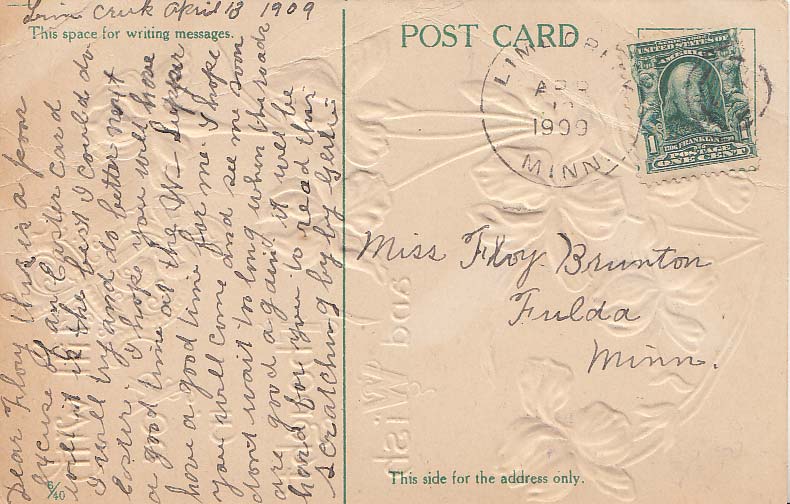 Lime Creek April 13 1909
This space for writing messages.
Dear Floy this is a poor
excuse of an Easter card
but it is the best I could do
I will try and do better next
Easter. I hope you will have
a good time at the W— Supper
have a good time for me. I hope
you will come and see me soon
dont wait too long when the roads
are good again. it will be
hard for you to read this
scratching by by Gertie
6/40
POST CARD
LIME CREEK
APR
1909
MINN.
UNITED STATES OF
AMERICA
1
FRANKLIN
POSTAGE
ONE CENT
1
Miss Floy Brunton
Fulda
Minn.
This side for the address only.